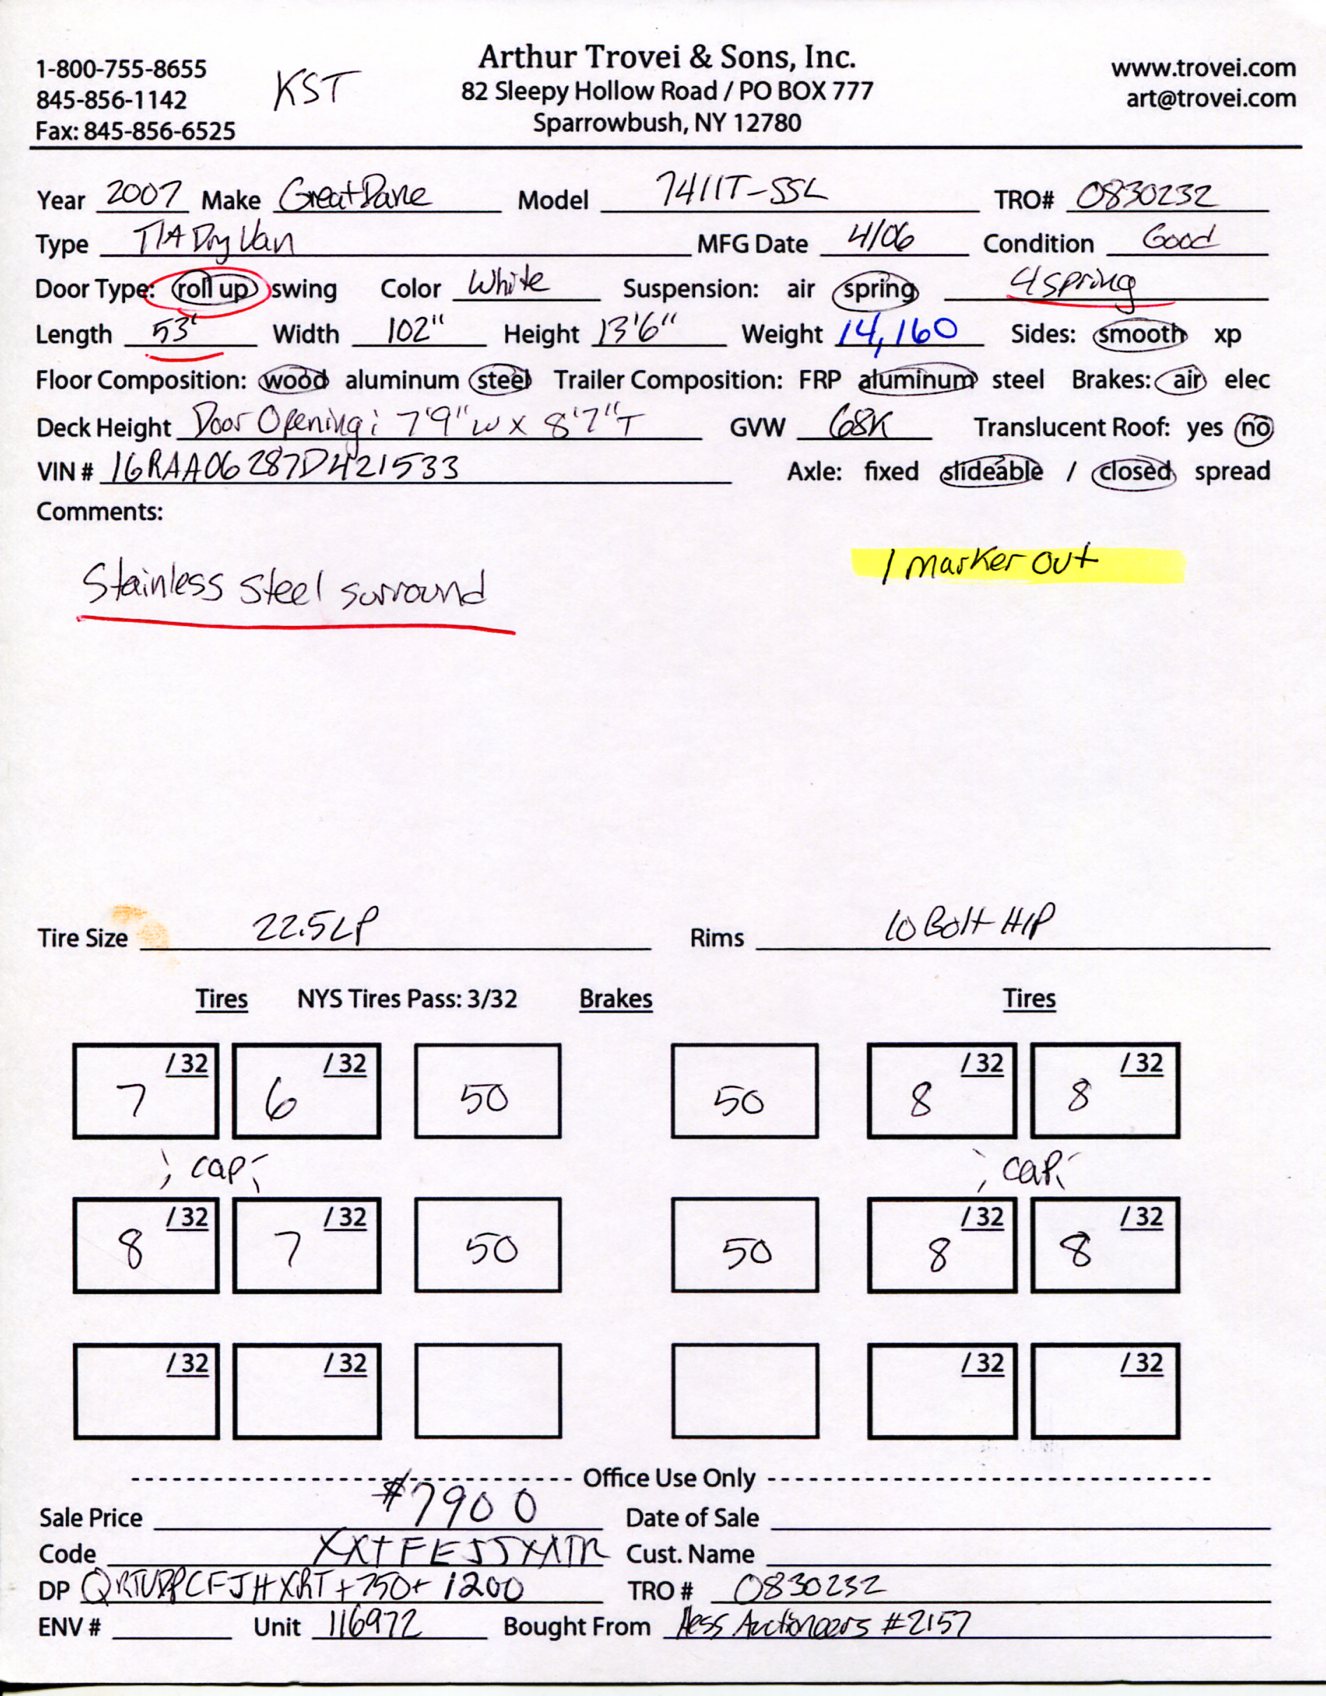 Arthur Trovei & Sons, Inc.
1-800-755-8655 KST 82 Sleepy Hollow Road / PO BOX 777 www.trovei.com
845-856-1142 Sparrowbush, NY 12780 art@trovei.com
Fax: 845-856-6525
Year 2007 Make Great Dane Model 7411T-SSL TRO# 0830232
Type T/A Dry Van MFG Date 4/06 Condition Good
Door Type: roll up swing Color White Suspension: air spring 4 spring
Length 53' Width 102" Height 13'6" Weight 14,160 Sides: smooth xp
Floor Composition: wood aluminum steel Trailer Composition: FRP aluminum steel Brakes: air elec
Deck Height Door Opening: 7'9"W x 8'7"T GVW 68K Translucent Roof: yes no
VIN # 1GRAA06287D421533 Axle: fixed slideable / closed spread
Comments:
Stainless Steel surround 1 marker out
Tire Size 22.5LP Rims 10 Bolt H/P
Tires NYS Tires Pass: 3/32 Brakes Tires
7 /32 6 /32 50 50 8 /32 8 /32
; cap; ; cap;
8 /32 7 /32 50 50 8 /32 8 /32
/32 /32 /32 /32
Office Use Only
Sale Price $7900 Date of Sale
Code Cust. Name
DP +750+1200 TRO # 0830232
ENV # Unit 116972 Bought From Hess Auctioneers #2157